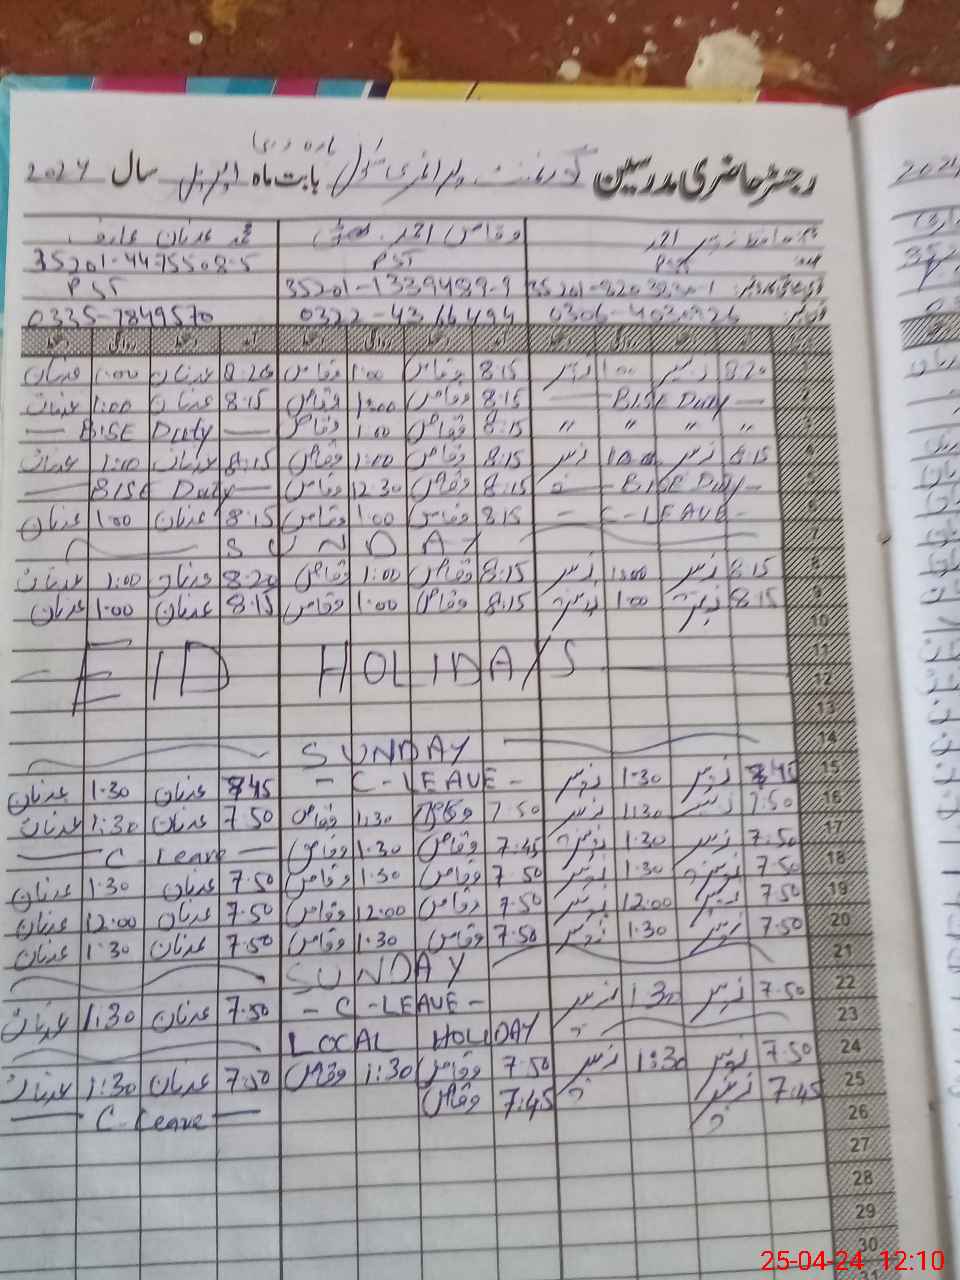 رجسٹر حاضری مدرسین گورنمنٹ پرائمری سکول بابت ماہ اپریل سال 2024
محمد عدنان عارف وقاص احمد زبیر احمد
35201-4475508-5 PST
PST 35201-1339489-9
0335-7849570 0322-4366494
عدنان 1:00 عدنان 8:20 وقاص 1:00 وقاص 8:15 زبیر 1:00 زبیر 8:20 1
عدنان 1:00 عدنان 8:15 وقاص 1:00 وقاص 8:15 — BISE Duty — 2
— BISE Duty — وقاص 1:00 وقاص 8:15 〃 〃 〃 〃 3
عدنان 1:00 عدنان 8:15 وقاص 1:00 وقاص 8:15 زبیر 1:00 زبیر 8:15 4
— BISE Duty — وقاص 12:30 وقاص 8:15 — BISE Duty — 5
عدنان 1:00 عدنان 8:15 وقاص 1:00 وقاص 8:15 — C-LEAVE — 6
SUNDAY 7
عدنان 1:00 عدنان 8:20 وقاص 1:00 وقاص 8:15 زبیر 1:00 زبیر 8:15 8
عدنان 1:00 عدنان 8:15 وقاص 1:00 وقاص 8:15 زبیر 1:00 زبیر 8:15 9
10
11
— EID HOLIDAYS — 12
13
SUNDAY 14
عدنان 1:30 عدنان 8:45 — C-LEAVE — زبیر 1:30 زبیر 8:45 15
عدنان 1:30 عدنان 7:50 وقاص 1:30 وقاص 7:50 زبیر 1:30 زبیر 7:50 16
— C Leave — وقاص 1:30 وقاص 7:45 زبیر 1:30 زبیر 7:50 17
عدنان 1:30 عدنان 7:50 وقاص 1:30 وقاص 7:50 زبیر 1:30 زبیر 7:50 18
عدنان 12:00 عدنان 7:50 وقاص 12:00 وقاص 7:50 زبیر 12:00 زبیر 7:50 19
عدنان 1:30 عدنان 7:50 وقاص 1:30 وقاص 7:50 زبیر 1:30 زبیر 7:50 20
SUNDAY 21
عدنان 1:30 عدنان 7:50 — C-LEAVE — زبیر 1:30 زبیر 7:50 22
LOCAL HOLIDAY 23
عدنان 1:30 عدنان 7:50 وقاص 1:30 وقاص 7:50 زبیر 1:30 زبیر 7:50 24
— C. Leave — وقاص 7:45 زبیر 7:45 25
26
27
28
29
30
25-04-24 12:10